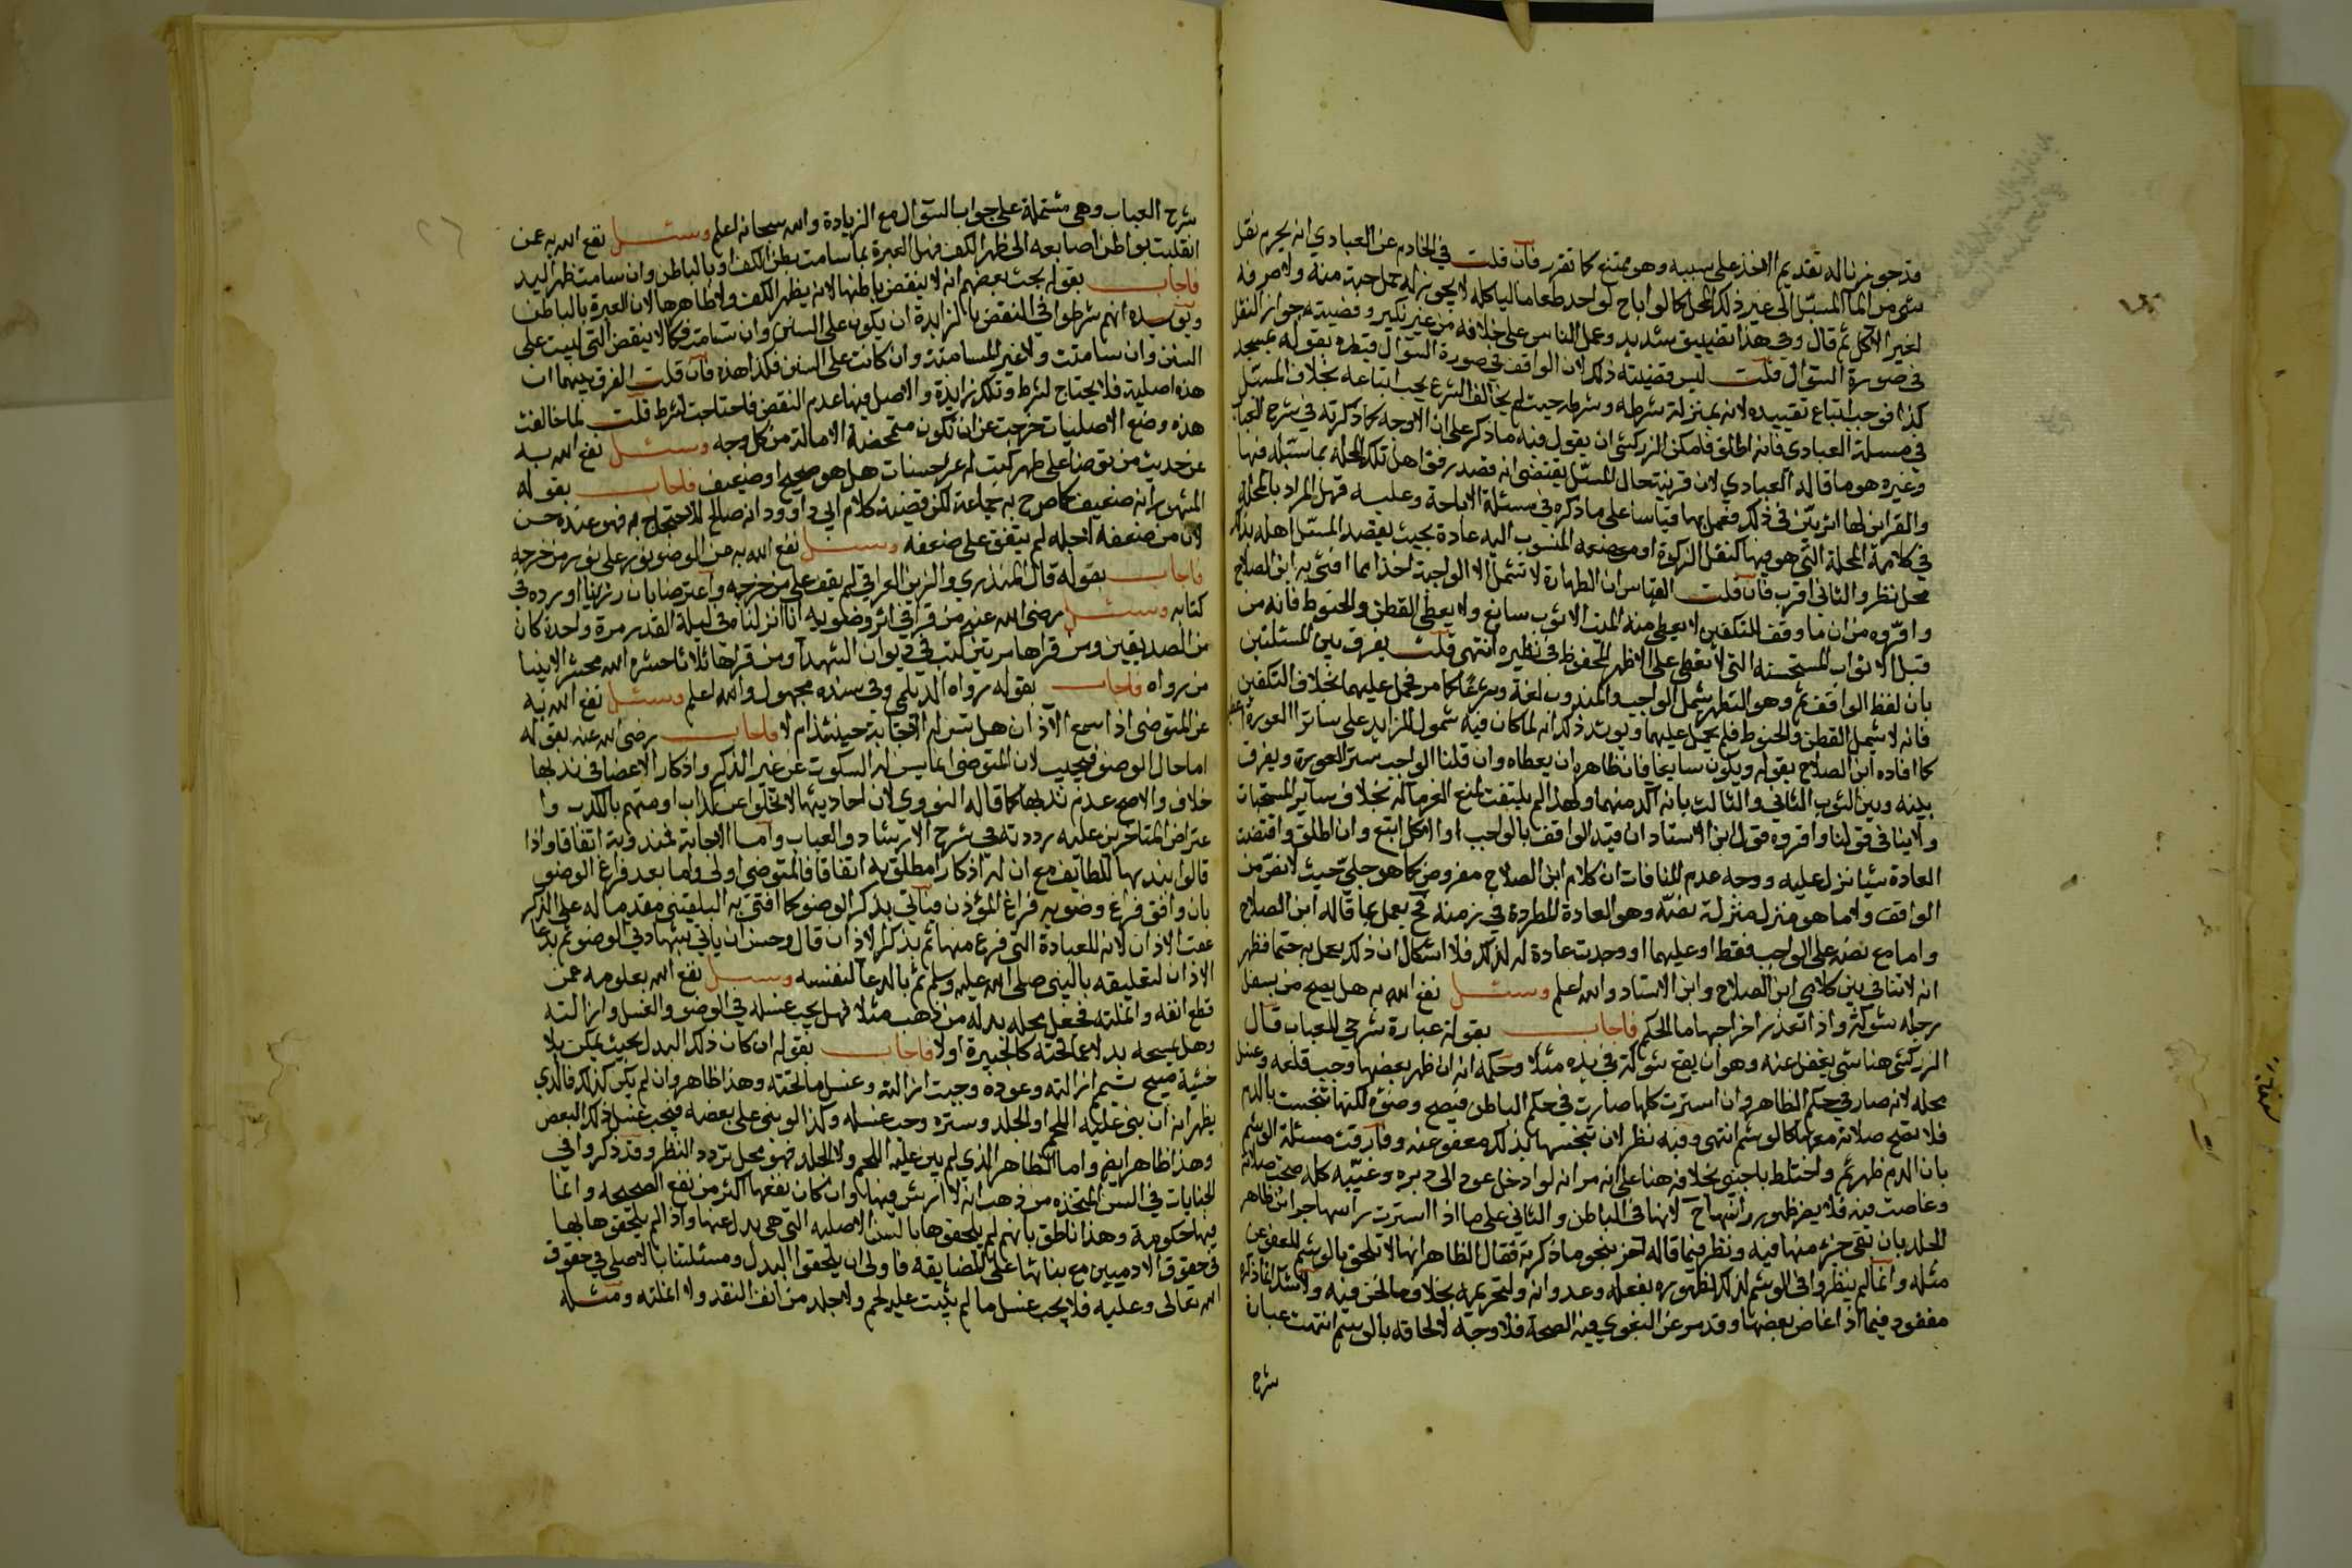 قد جوزنا له تقديم الاخذ على سببه وهو ممتنع كما تقرر فان قلت في الخادم عن العبادي انه يحرم نقل
شئ من الماء المسبل الى غير ذلك المحل كما لو اباح لواحد طعاما لياكله لا يجوز له حمل حبة منه ولا صرفه
لغير الاكل ثم قال وفي هذا تضييق شديد وعمل الناس على خلافه من غير نكير وقضيته جواز النقل
في صورة السؤال قلت ليس قضيته ذلك لان الواقف في صورة السؤال قيده بقوله بمسجد
كذا فوجب اتباع تقييده لانه بمنزلة شرطه وشرطه حيث لم يخالف الشرع يجب اتباعه بخلاف المسبل
في مسئلة العبادي فانه اطلق فامكن الزركشي ان يقول فيه ما ذكر على ان الاوجه كما ذكرته في شرح العباب
وغيره هو ما قاله العبادي لان قرينة حال المسبل يقتضي انه قصد رفق اهل تلك المحلة بما سبله فيها
والقرائن لها اثر بين في ذلك فعمل بها قياسا على ما ذكره في مسئلة الاباحة وعليه فهل المراد بالمحلة
في كلامه المحلة التي هو فيها كنقل الزكوة او موضعه المنسوب اليه عادة بحيث يقصد المسبل اهله بذلك
محل نظر والثاني اقرب فان قلت القياس ان الطهارة لا تشمل الا الواجبة اخذا مما افتى به ابن الصلاح
واقروه من ان ما وقف للتكفين لا يعطى منه الميت الا ثوب سابغ ولا يعطى القطن والحنوط فانه من
قبيل الاثواب المستحسنة التي لا تعطى على الاظهر المحفوظ في نظيره انتهى قلت يفرق بين المسئلتين
بان لفظ الواقف ثم وهو التطهر يشمل الواجب والمندوب لغة وشرعا كما مر فحمل عليهما بخلاف التكفين
فانه لا يشمل القطن والحنوط فلم يحمل عليهما ويؤيد ذلك انه لما كان فيه شمول للزايد على ساتر العورة
كما افاده ابن الصلاح بقوله ويكون سابغا فان ظاهره ان يعطاه وان قلنا الواجب ستر العورة ويفرق
بينه وبين الثوب الثاني والثالث بانه آكد منهما ولهذا لم يلتفت لمنع الغرماء له بخلاف ساير المستحبات
ولا ينافي قولنا واقروه قول ابن الاستاد ان قيد الواقف بالواجب او الاكمل اتبع وان اطلق واقتضت
العادة شيئا نزل عليه ووجه عدم المنافات ان كلام ابن الصلاح مفروض كما هو جلي حيث لا نص من
الواقف ولا ما هو منزل منزلة نصه وهو العادة المطردة في زمنه فح يعمل بما قاله ابن الصلاح
واما مع نصه على الواجب فقط او عليهما او وجدت عادة له لذلك فلا اشكال ان ذلك يعمل به حتما فظهر
انه لا تنافي بين كلامي ابن الصلاح وابن الاستاد والله اعلم وسئل نفع الله به هل يصح من بسفل
رجله شوكة واذا تعذر اخراجها ما الحكم فاجاب بقوله عبارة شرحي للعباب قال
الزركشي هنا شئ يغفل عنه وهو ان يقع شوكة في يده مثلا وحكمه انه ان ظهر بعضها وجب قلعه وغسل
محله لانه صار في حكم الظاهر وان استترت كلها صارت في حكم الباطن فيصح وضوءه لكنها تنجست بالدم
فلا تصح صلاته معها كالوشم انتهى وفيه نظر لان تنجسها بذلك معفو عنه وفارقت مسئلة الوشم
بان الدم ظهر ثم واختلط باجنبي بخلافه هنا على انه مر انه لو ادخل عودا الى دبره وغيبه كله صحت صلاته
وغاصت فيه فلا يضر ظهور راسها ح لانها في الباطن والثاني على ما اذا استترت راسها جزائن ظاهر
الجلد بان بقي جزء منها فيه ونظر فيما قاله اخر بنحو ما ذكرته فقال الظاهر انها لا تلحق بالوشم للعفو عن
مثله وانما لم ينظروا في الوشم لذلك لظهوره بفعله وعدوانه ولتحريمه بخلاف ما نحن فيه ولا شك ان ما ذكره
مفقود فيما اذا غاص بعضها وقد مر عن البغوي فيه الصحة فلا وجه لالحاقه بالوشم انتهت عبارة
شرح
شرح العباب وهي مشتملة على جواب السؤال مع الزيادة والله سبحانه اعلم وسئل نفع الله به عمن
انقلبت بواطن اصابعه الى ظهر الكف فهل العبرة بما سامت بطن الكف او بالباطن وان سامت ظهر اليد
فاجاب بقوله بحث بعضهم انه لا ينقض باطنها لانه بظهر الكف ولا ظاهرها لان العبرة بالباطن
ويؤيده انهم شرطوا في النقض بالزايدة ان يكون على السنن وان سامت فكما لا ينقض التي ليست على
السنن وان سامتت ولا غير المسامتة وان كانت على السنن فكذا هذه فان قلت الفرق بينهما ان
هذه اصلية فلا يحتاج لشرط وتلك زايدة والاصل فيها عدم النقض فاحتاجت لشرط قلت لما خالفت
هذه وضع الاصليات خرجت عن ان تكون متمحضة الاصالة من كل وجه وسئل نفع الله به
عن حديث من توضا على طهر كتب له عشر حسنات هل هو صحيح او ضعيف فاجاب بقوله
المشهور انه ضعيف كما صرح به جماعة لكن قضية كلام ابي داوود انه صالح للاحتجاج به فهو عنده حسن
لان من ضعفه لاجله لم يتفق على ضعفه وسئل نفع الله به عن الوضوء نور على نور من خرجه
فاجاب بقوله قال المنذري والزين العراقي لم يقف على من خرجه واعترضا بان رزينا اورده في
كتابه وسئل رضي الله عنه من قرا في اثر وضوءه انا انزلناه في ليلة القدر مرة واحدة كان
من الصديقين ومن قراها مرتين كتب في ديوان الشهداء ومن قراها ثلاثا حشره الله محشر الانبيا
من رواه فاجاب بقوله رواه الديلمي وفي سنده مجهول والله اعلم وسئل نفع الله به
عن المتوضئ اذا سمع الآذان هل تسن له الاجابة حينئذ ام لا فاجاب رضي الله عنه بقوله
اما حال الوضوء فيجيب لان المتوضئ انما يسن له السكوت عن غير الذكر واذكار الاعضا في ندبها
خلاف والاصح عدم ندبها كما قاله النووي لان احاديثها لا تخلوا عن كذاب او متهم بالكذب وا
عتراض المتاخرين عليه رددته في شرح الارشاد والعباب واما الاجابة فمندوبة اتفاقا واذا
قالوا بندبها للطائف مع ان له اذكارا مطلوبة اتفاقا فالمتوضئ اولى واما بعد فراغ الوضوء
بان وافق فراغ وضوءه فراغ المؤذن فياتي بذكر الوضوء كما افتى به البلقيني مقدما له على الذكر
عقب الاذان لانه للعبادة التي فرغ منها ثم بذكر الاذان قال وحسن ان ياتي بشهادتي الوضوء ثم بدعا
الاذان لتعلقه بالنبي صلى الله عليه وسلم ثم بالدعا لنفسه وسئل نفع الله بعلومه عمن
قطع انفه وانملته فجعل محله بدله من ذهب مثلا فهل يجب غسله في الوضوء والغسل وازالته
وهل يمسحه بدلا عما تحته كالجبيرة اولا فاجاب بقوله ان كان ذلك البدل بحيث يمكن بلا
خشية مبيح تيمم ازالته وعوده وجبت ازالته وغسل ما تحته وهذا ظاهر وان لم يكن كذلك فالذي
يظهر انه ان بني عليه اللحم او الجلد وستره وجب غسله وكذا لو بني على بعضه فيجب غسل ذلك البعض
وهذا ظاهر ايضا واما الظاهر الذي لم يبن عليه اللحم ولا الجلد فهو محل تردد النظر وقد ذكروا في
الجنايات في السن المتخذه من ذهب انه لا ارش فيها وان كان نفعها اكثر من نفع الصحيحه وانما
فيها حكومة وهذا ناطق بانهم لم يلحقوها بالسن الاصليه التي هي بدل عنها واذا لم يلحقوها بها
في حقوق الادميين مع بنائها على المضايقة فاولى ان يلحقوا البدل ومسئلتنا بالاصلي في حقوق
الله تعالى وعليه فلا يجب غسل ما لم ينبت عليه لحم ولا جلد من انف النقد ولا انملته ومثله